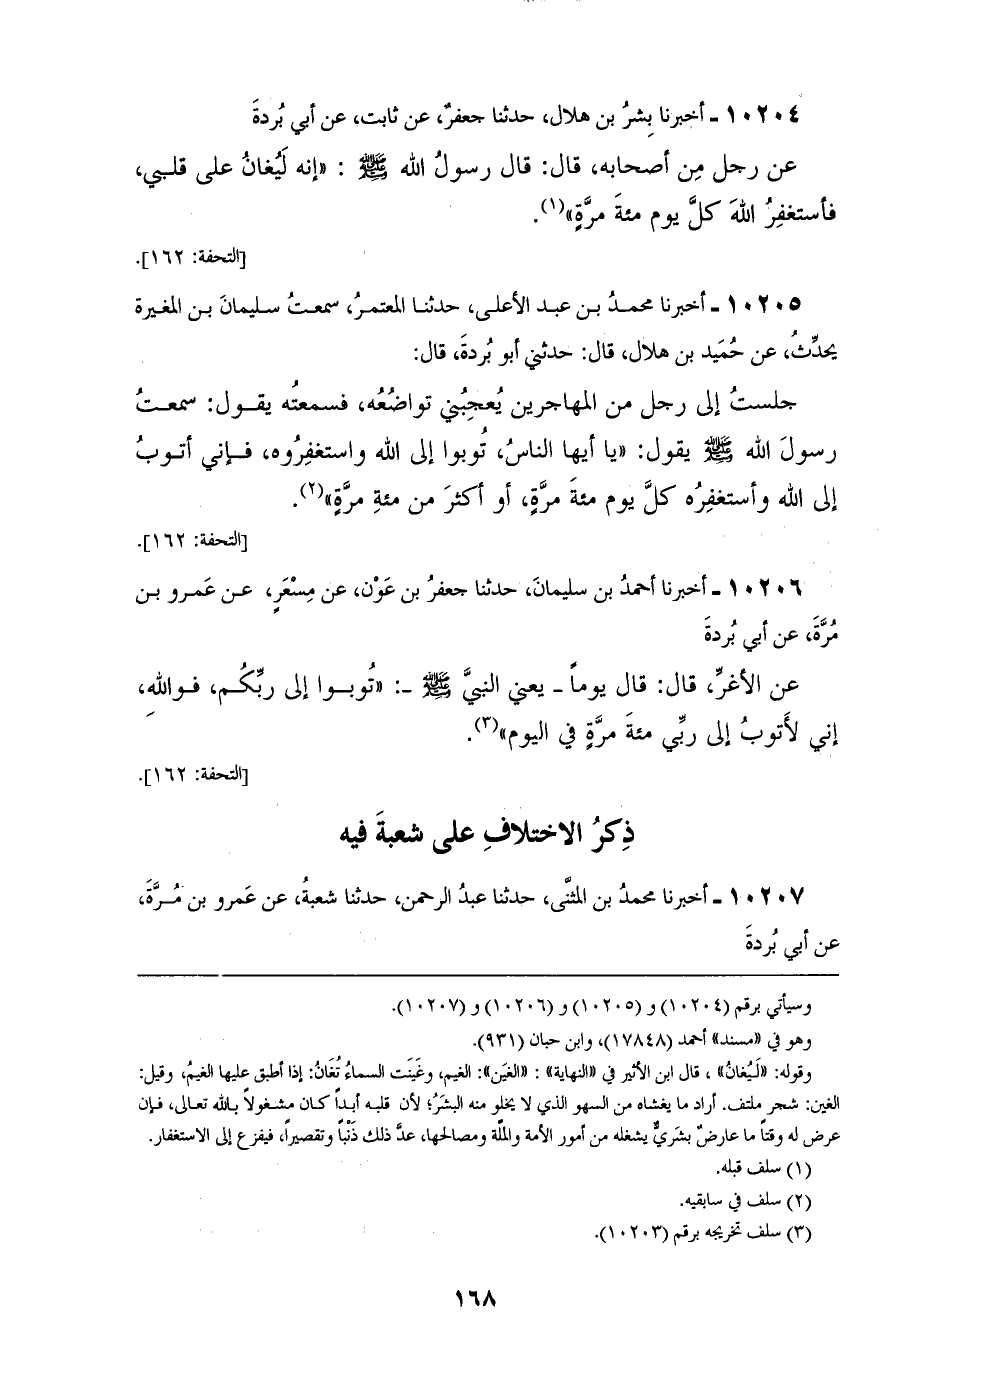 ١٠٢٠٤ ـ أخبرنا بِشرُ بن هلال، حدثنا جعفرٌ، عن ثابت، عن أبي بُردةَ
عن رجل مِن أصحابه، قال: قال رسولُ الله ﷺ : «إنه لَيُغانُ على قلبي،
فأستغفِرُ اللهَ كلَّ يوم مئةَ مرَّةٍ»(١).
[التحفة: ١٦٢].
١٠٢٠٥ ـ أخبرنا محمدُ بن عبد الأعلى، حدثنا المعتمرُ، سمعتُ سليمانَ بن المغيرة
يحدِّثُ، عن حُمَيد بن هلال، قال: حدثني أبو بُردةَ، قال:
جلستُ إلى رجل من المهاجرين يُعجِبُني تواضُعُه، فسمعتُه يقول: سمعتُ
رسولَ الله ﷺ يقول: «يا أيها الناسُ، تُوبوا إلى الله واستغفِرُوه، فإني أتوبُ
إلى الله وأستغفِرُه كلَّ يوم مئةَ مرَّةٍ، أو أكثرَ من مئةِ مرَّةٍ»(٢).
[التحفة: ١٦٢].
١٠٢٠٦ ـ أخبرنا أحمدُ بن سليمانَ، حدثنا جعفرُ بن عَوْن، عن مِسْعَرٍ، عن عَمرو بن
مُرَّةَ، عن أبي بُردةَ
عن الأغرِّ، قال: قال يوماً ـ يعني النبيَّ ﷺ ـ: «تُوبوا إلى ربِّكُم، فواللهِ،
إني لأَتوبُ إلى ربِّي مئةَ مرَّةٍ في اليوم»(٣).
[التحفة: ١٦٢].
ذِكرُ الاختلافِ على شعبةَ فيه
١٠٢٠٧ ـ أخبرنا محمدُ بن المثنَّى، حدثنا عبدُ الرحمن، حدثنا شعبةُ، عن عَمرو بن مُرَّةَ،
عن أبي بُردةَ
وسيأتي برقم (١٠٢٠٤) و (١٠٢٠٥) و (١٠٢٠٦) و (١٠٢٠٧).
وهو في «مسند» أحمد (١٧٨٤٨)، وابن حبان (٩٣١).
وقوله: «لَيُغانُ» ، قال ابن الأثير في «النهاية» : «الغَيَن»: الغيم، وغَيَنَت السماءُ تُغَانُ: إذا أطبق عليها الغيمُ، وقيل:
الغين: شجر ملتف. أراد ما يغشاه من السهو الذي لا يخلو منه البشَرُ؛ لأن قلبه أبداً كان مشغولاً بالله تعالى، فإن
عرض له وقتاً ما عارضٌ بشَريٌّ يشغله من أمور الأمة والملَّة ومصالحها، عدَّ ذلك ذَنْباً وتقصيراً، فيفزع إلى الاستغفار.
(١) سلف قبله.
(٢) سلف في سابقيه.
(٣) سلف تخريجه برقم (١٠٢٠٣).
١٦٨